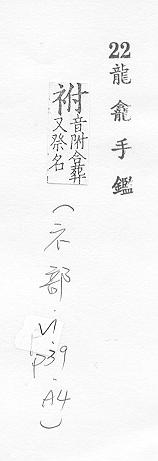 22龍龕手鑑
祔音附合葬又祭名
(示部.V1.P39.A4)